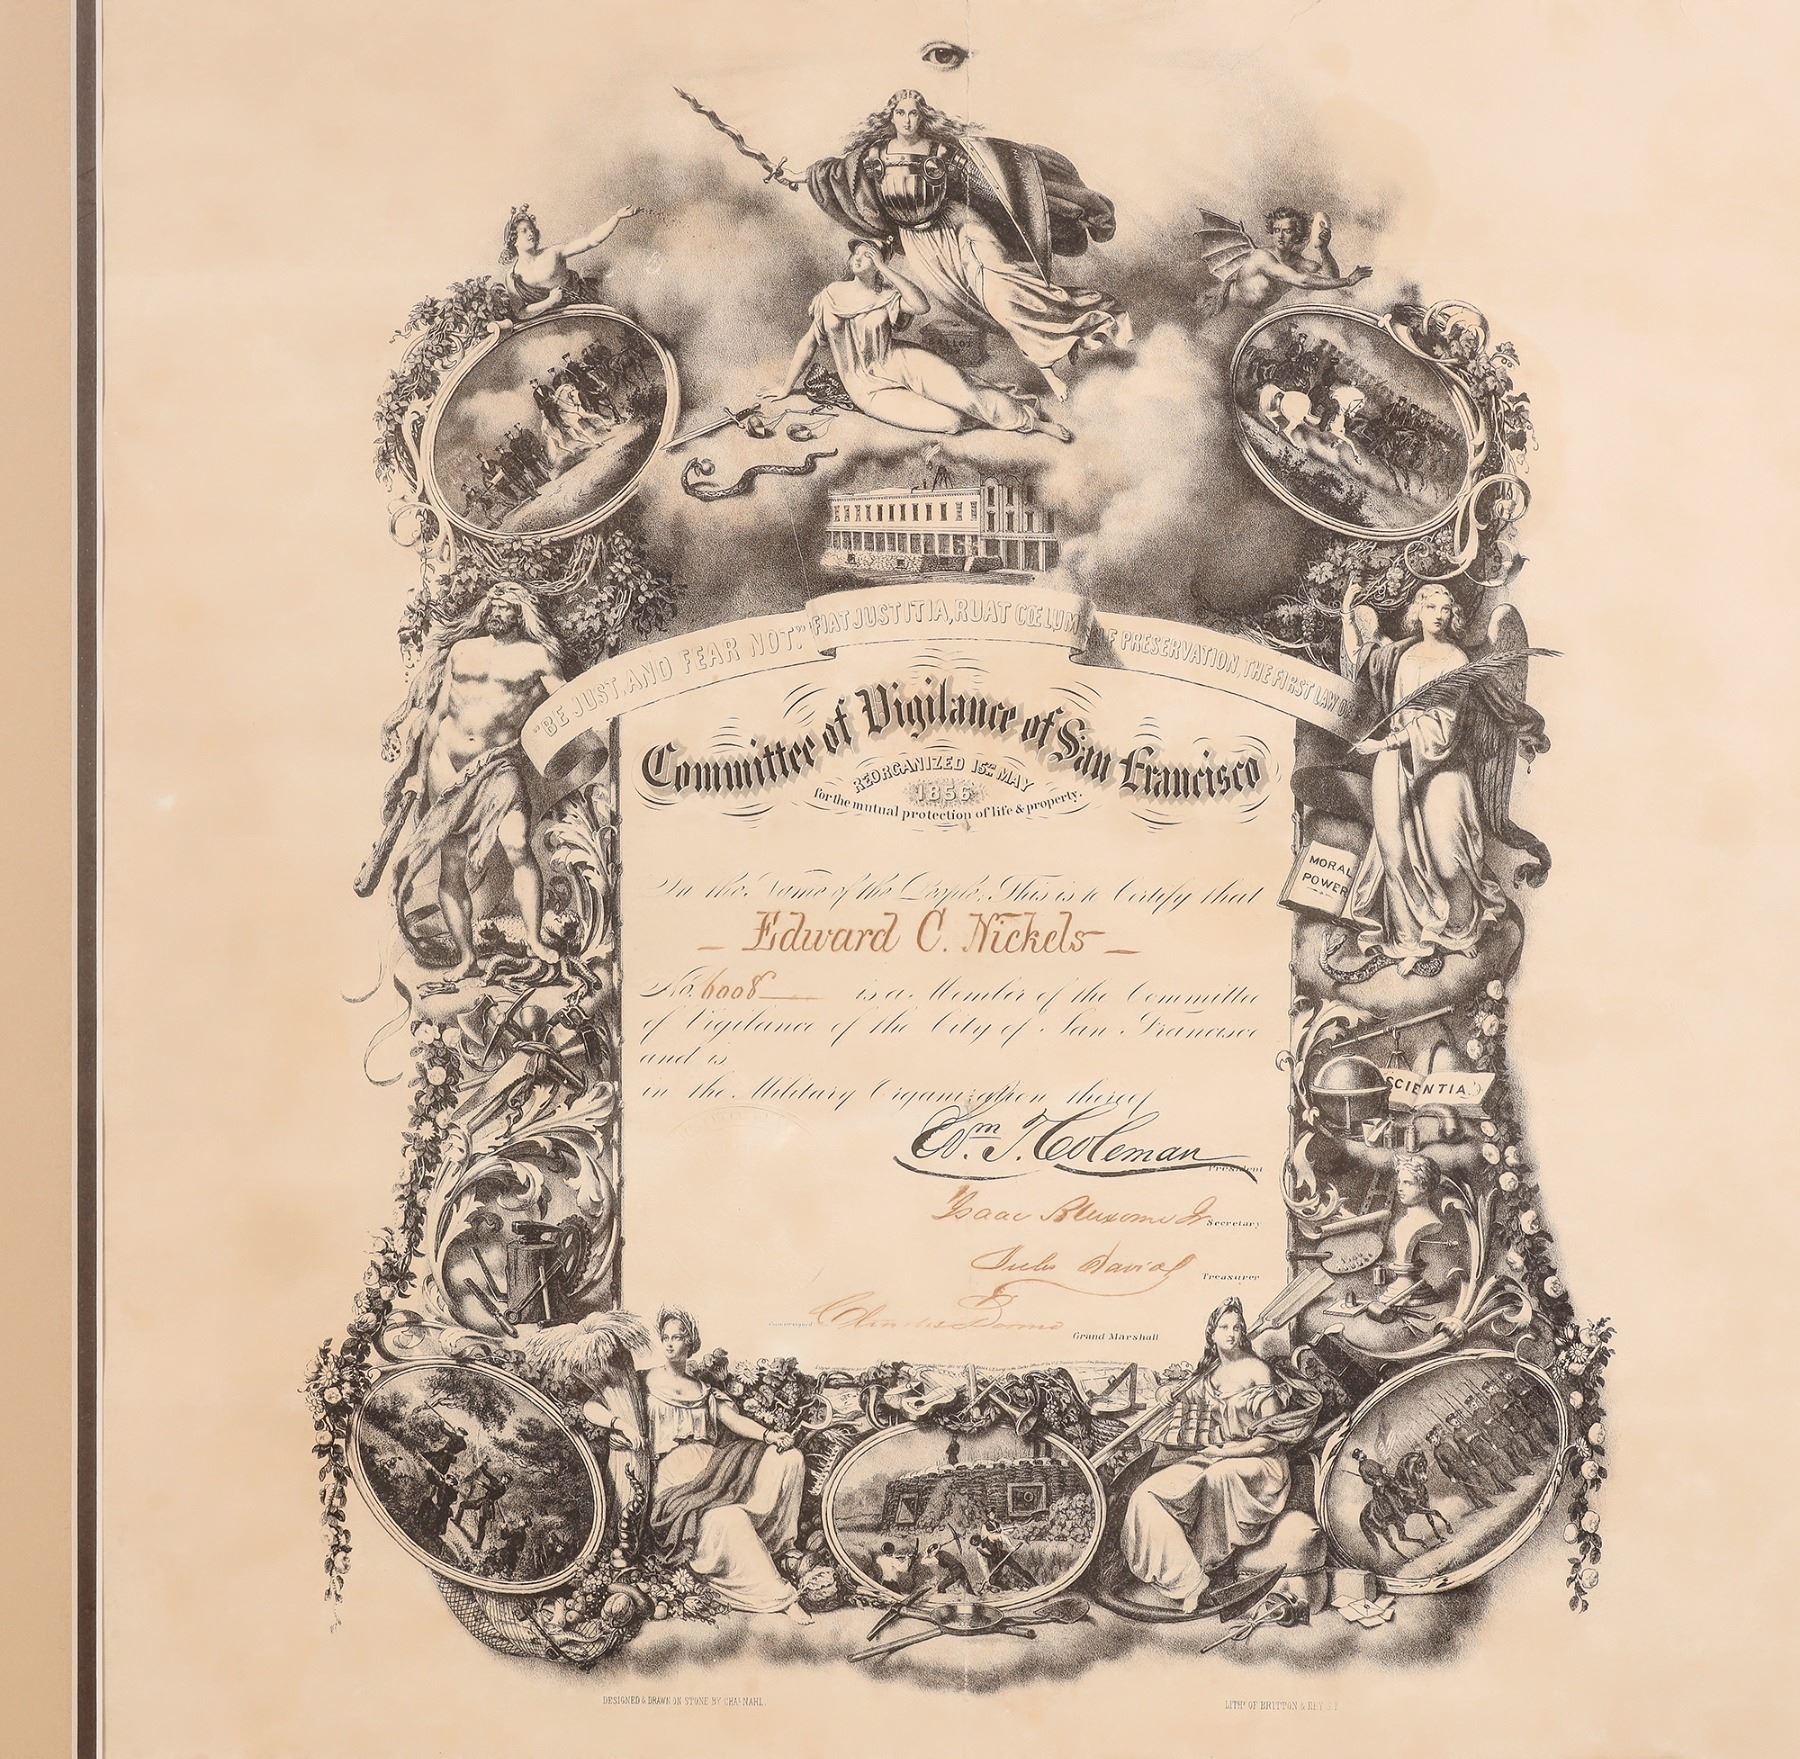 BALLOT
"BE JUST, AND FEAR NOT." FIAT JUSTITIA, RUAT CŒLUM LF PRESERVATION, THE FIRST LAW O
Committee of Vigilance of San Francisco
REORGANIZED 15TH MAY
1856
for the mutual protection of life & property.
MORAL
POWER
In the Name of the People, This is to Certify that
Edward C. Nickels
No. 6008 is a Member of the Committee
of Vigilance of the City of San Francisco
and is
in the Military Organization thereof
SCIENTIA
Wm. T. Coleman President
Isaac Bluxome Jr Secretary
Jules David Treasurer
Countersigned Charles Doane Grand Marshall
DESIGNED & DRAWN ON STONE BY CHAS NAHL.
LITHY OF BRITTON & REY S.F.